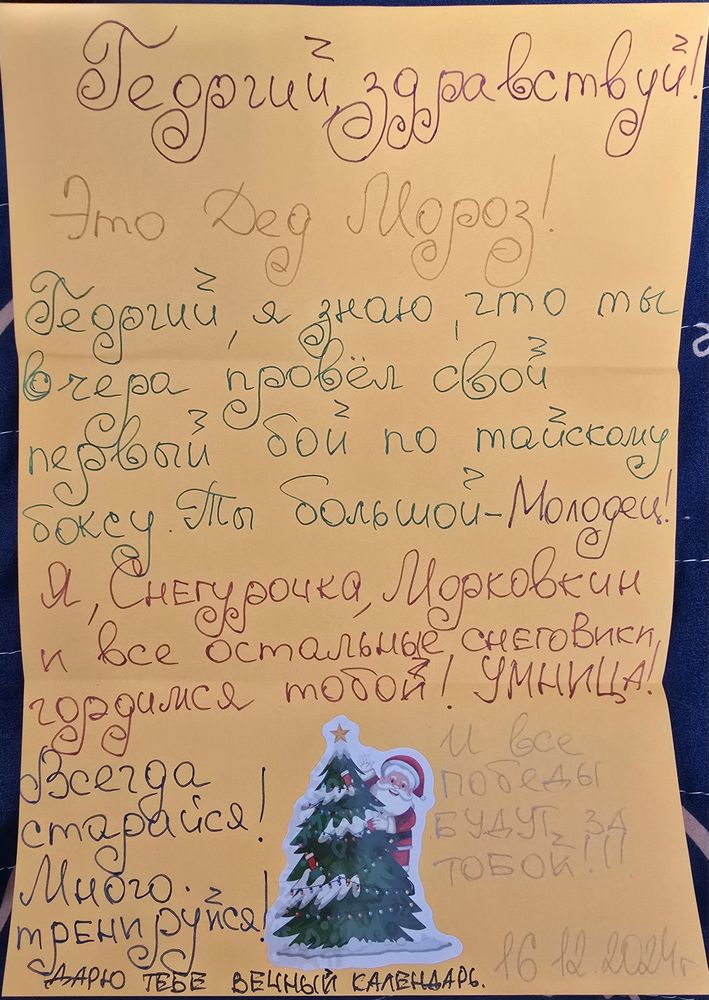 Георгий, здравствуй!
Это Дед Мороз!
Георгий, я знаю, что ты
вчера провёл свой
первый бой по тайскому
боксу. Ты большой-Молодец!
Я, Снегурочка, Морковкин
и все остальные снеговики,
гордимся тобой! УМНИЦА!
Всегда
старайся!
Много
тренируйся!
И все
победы
БУДУТ ЗА
ТОБОЙ!!!
16.12.2024г
ДАРЮ ТЕБЕ ВЕЧНЫЙ КАЛЕНДАРЬ.